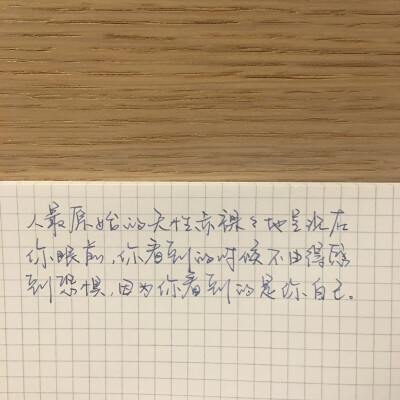 人最原始的天性赤裸々地呈现在
你眼前,你看到的时候不由得感
到恐惧,因为你看到的是你自己。